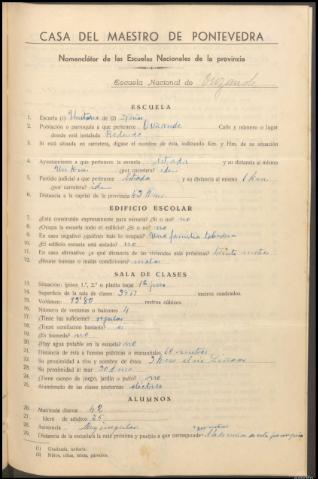 CASA DEL MAESTRO DE PONTEVEDRA
Nomenclátor de las Escuelas Nacionales de la provincia
Escuela Nacional de
ESCUELA
1. Escuela (1) Unitaria de (2) Niños
2. Población o parroquia a que pertenece Calle y número o lugar
donde está instalada
3. Si está situada en carretera, dígase el nombre de ésta, indicando Km. y Hm. de su situación
4. Ayuntamiento a que pertenece la escuela y su distancia al mismo
(por carretera) id
5. Partido judicial a que pertenece y su distancia al mismo 1 km
(por carretera) id
6. Distancia a la capital de la provincia 63 Km.
EDIFICIO ESCOLAR
7. ¿Está construído expresamente para escuela? Si o no? no
8. ¿Ocupa la escuela todo el edificio? Si o no? no
9. En caso negativo ¿quiénes más lo ocupan? Una familia labradora
10. ¿El edificio escuela está aislado? no
11. En caso afirmativo ¿a qué distancia de las viviendas más próximas? veinte metros
12. ¿Reune buenas o malas condiciones? malas
SALA DE CLASES
13. Situación: (piso 1.º, 2.º o planta baja) 1º piso
14. Superficie de la sala de clases metros cuadrados.
15. Volúmen: metros cúbicos.
16. Número de ventanas o balcones 4
17. ¿Tiene luz suficiente? regular
18. ¿Tiene ventilación bastante? si
19. ¿Es húmeda? no
20. ¿Hay agua potable en la escuela? no
21. Distancia de ésta a fuentes públicas o manantiales metros
22. Su proximidad a ríos y nombre de éstos
23. Su proximidad al mar
24. ¿Tiene campo de juego, jardín o patio? no
25. Alumbrado de las clases nocturnas eléctrico
ALUMNOS
26. Matrícula diurna: 42
27. Idem de adultos 25
28. Asistencia Muy irregular
29. Distancia de la escuela a la más próxima y pueblo a que corresponde
(1) Graduada, unitaria.
(2) Niños, niñas, mixta, párvulos.